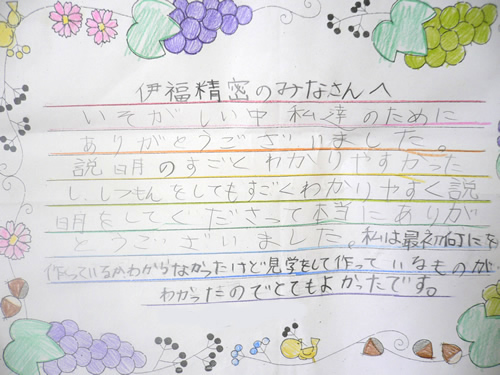 伊福精密のみなさんへ
いそがしい中 私達のために
ありがとうございました。
説明のすごくわかりやすかった
し、しつもんをしてもすごくわかりやすく説
明をしてくださって本当にありが
とうございました。私は最初何にを
作っているかわからなかったけど見学をして作っているものが
わかったのでとてもよかったです。